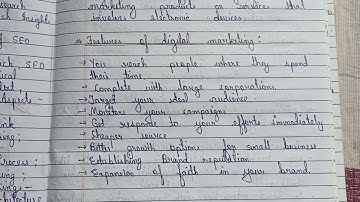 search
ch Insights
marketing products or service that
involves electronic devices.
SEO
* Features of digital marketing:
ch SEO
→ You reach people where they spend
their time
→ Complete with large corporations
→ Target your ideal audience.
→ Monitor your campaigns
→ Get response to your efforts immediately
→ Sharper source
→ Better growth options for small business
→ Establishing Brand reputation
→ Expansion of faith in your brand.
ical
Aspects
ing:
Process:
ing: